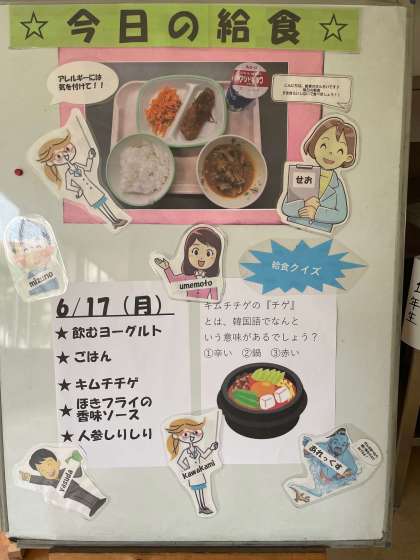 ☆今日の給食☆
アレルギーには
気を付けて！！
せお
mizuno
umemoto
給食クイズ
6/17（月）
★飲むヨーグルト
★ごはん
★キムチチゲ
★ほきフライの
香味ソース
★人参しりしり
キムチチゲの『チゲ』
とは、韓国語でなんと
いう意味があるでしょう？
①辛い ②鍋 ③赤い
yasuda
kawakami
あれっくす
年生